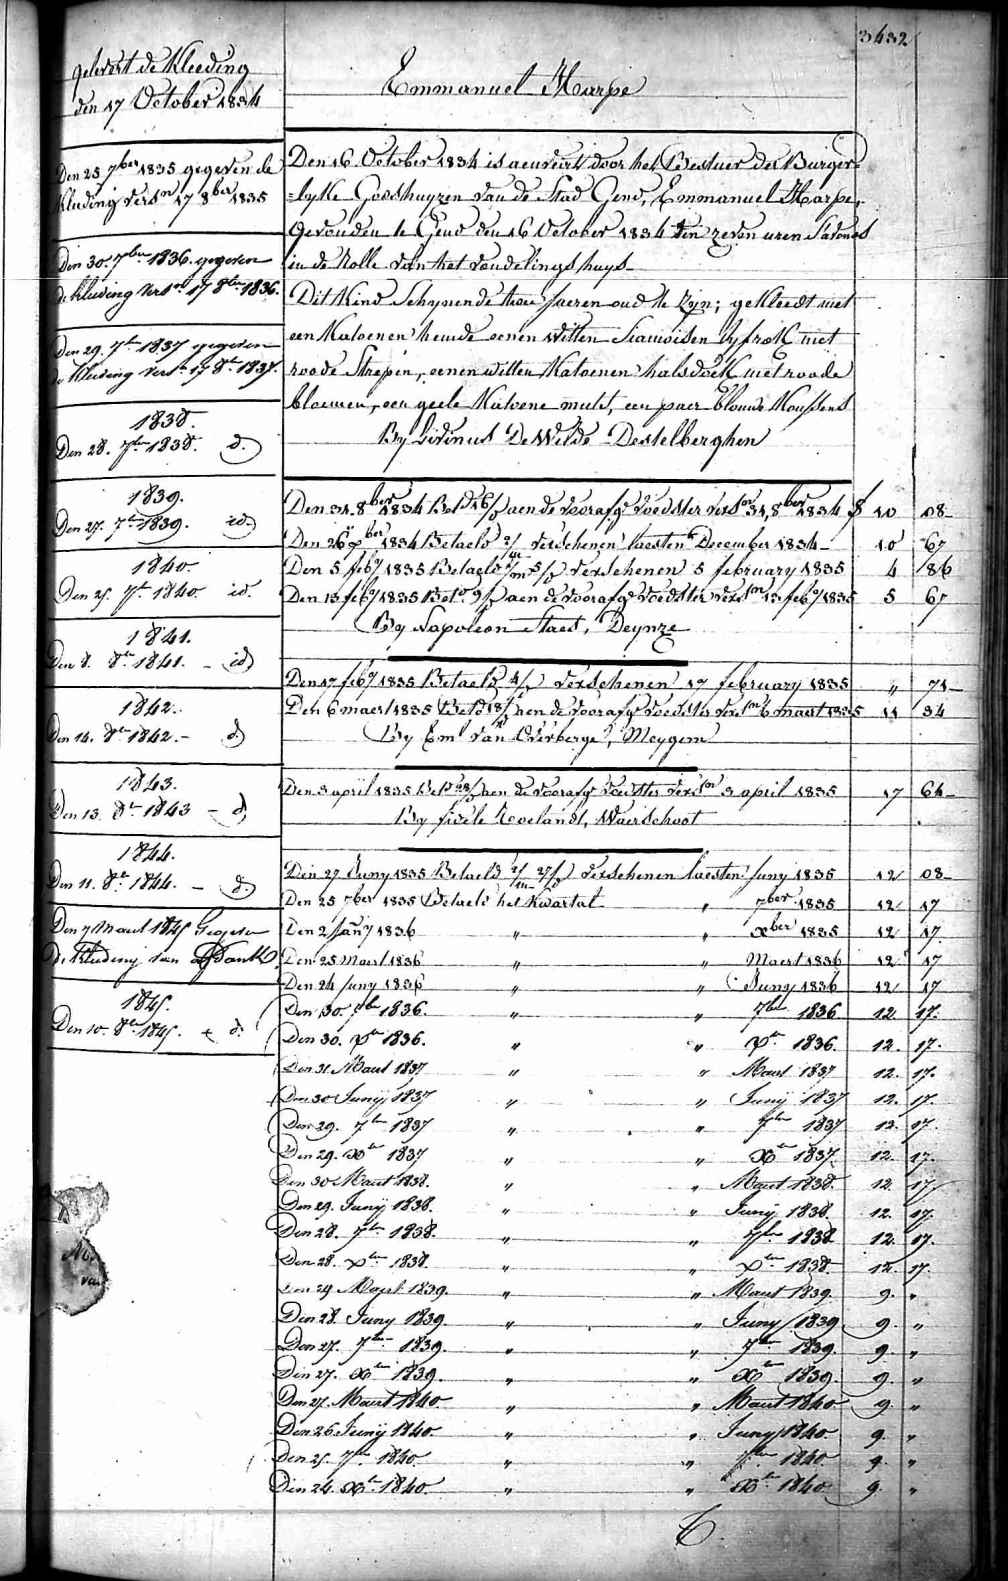 3632
gelevert de Kleeding
den 17 October 1834
Den 25 7ber 1835 gegeven de
Kleeding versn 17 8ber 1835
Den 30. 7ber 1836. gegeven
de Kleeding versn 17 8ber 1836.
Den 29. 7br 1837 gegeven
de Kleeding versn 17 8br 1837.
1838.
Den 28. 7ber 1838. d.
1839.
Den 27. 7br 1839. id.
1840.
Den 25. 7br 1840 id.
1841.
Den 8. 8br 1841. - id
1842.
Den 14. 8br 1842. - d
1843.
Den 13. 8br 1843 - d
1844.
Den 11. 8br 1844. - d.
Den 7 Maart 1845 Gegeven
de Kleeding van
1845.
Den 10. 8br 1845. d.
Emmanuel Harpe
Den 16 October 1834 is aenveird door het Bestuer der Burger=
=lyke Godshuyzen van de Stad Gend, Emmanuel Harpe,
Gevonden te Gend den 16 October 1834 ten zeven uren S'avonds
in de Rolle van het vondelingshuys_
Dit Kind Schynende twee jaeren oud te zyn; gekleedt met
een Katoenen hemde eenen witten Siamoisen lyfrok met
roode Strepen, eenen witten Katoenen halsdoek met roode
bloemen, een geele Katoene muts, een paer blouwe Koussens
By Livinus De Wilde - Destelberghen
Den 31. 8ber 1834 Betd 16/d aen de voorafge voedster versn 31, 8ber 1834 f 10 08_
Den 26 xber 1834 Betaeld 2/m verschenen laesten December 1834_ 10 67
Den 5 feby 1835 Betaeld 1/m 5/d verschenen 5 february 1835 4 86
Den 13 feby 1835 Betd 9/d aen de voorafge voedster versn 13 feby 1835 5 67
By Napoleon Staes, Deynze
Den 17 feby 1835 Betaeld 4/d verschenen 17 february 1835 " 71_
Den 6 maert 1835 Betd 18/d aen de voorafge voedster versn 6 maart 1835 11 34
By Eml van Overberge, Meygem
Den 3 april 1835 Betd 28/d aen de voorafge voedster versn 3 april 1835 17 64_
By fidele Roelandt, Waerschoot
Den 27 Juny 1835 Betaeld 2/m 27/d verschenen laesten Juny 1835 12 03_
Den 25 7ber 1835 Betaeld het Kwartal " 7ber 1835 12 17
Den 2 Jany 1836 " " xber 1835 12 17.
Den 25 Maert 1836 " " Maert 1836 12 17
Den 24 Juny 1836 " " Juny 1836 12 17
Den 30. 7ber 1836. " " 7ber 1836 12 17.
Den 30. xbr 1836. " " xbr 1836. 12. 17.
Den 31. Maart 1837 " " Maart 1837 12. 17.
Den 30 Junij 1837 " " Junij 1837 12. 17.
Den 29. 7ber 1837 " " 7ber 1837 12. 17.
Den 29. xbr 1837 " " xbr 1837. 12. 17.
Den 30 Maart 1838. " " Maart 1838. 12. 17
Den 29. Junij 1838. " " Junij 1838. 12. 17.
Den 28. 7ber 1838. " " 7ber 1838 12. 17.
Den 28. xber 1838. " " xber 1838. 12. 17.
Den 29 Maart 1839. " " Maart 1839. 9. "
Den 28. Juny 1839. " " Juny 1839 9. "
Den 27. 7ber 1839. " " 7ber 1839. 9. "
Den 27. xber 1839. " " xber 1839. 9. "
Den 27. Maart 1840 " " Maart 1840 9. "
Den 26 Junij 1840 " " Junij 1840 9. "
Den 25. 7br 1840 " " 7ber 1840 9. "
Den 24. xbr 1840. " " xbr 1840 9. "